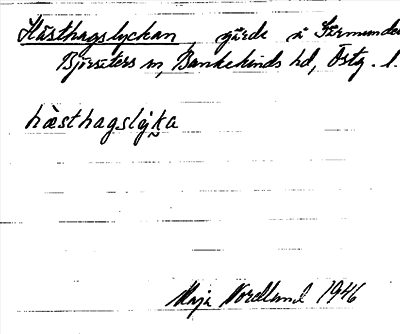 Hästhagslyckan, gärde i Sörmunde
Björsäters sn, Bankekinds hd, Östg. l.
hàsthagslýk̮a
Maja Nordlund 1946